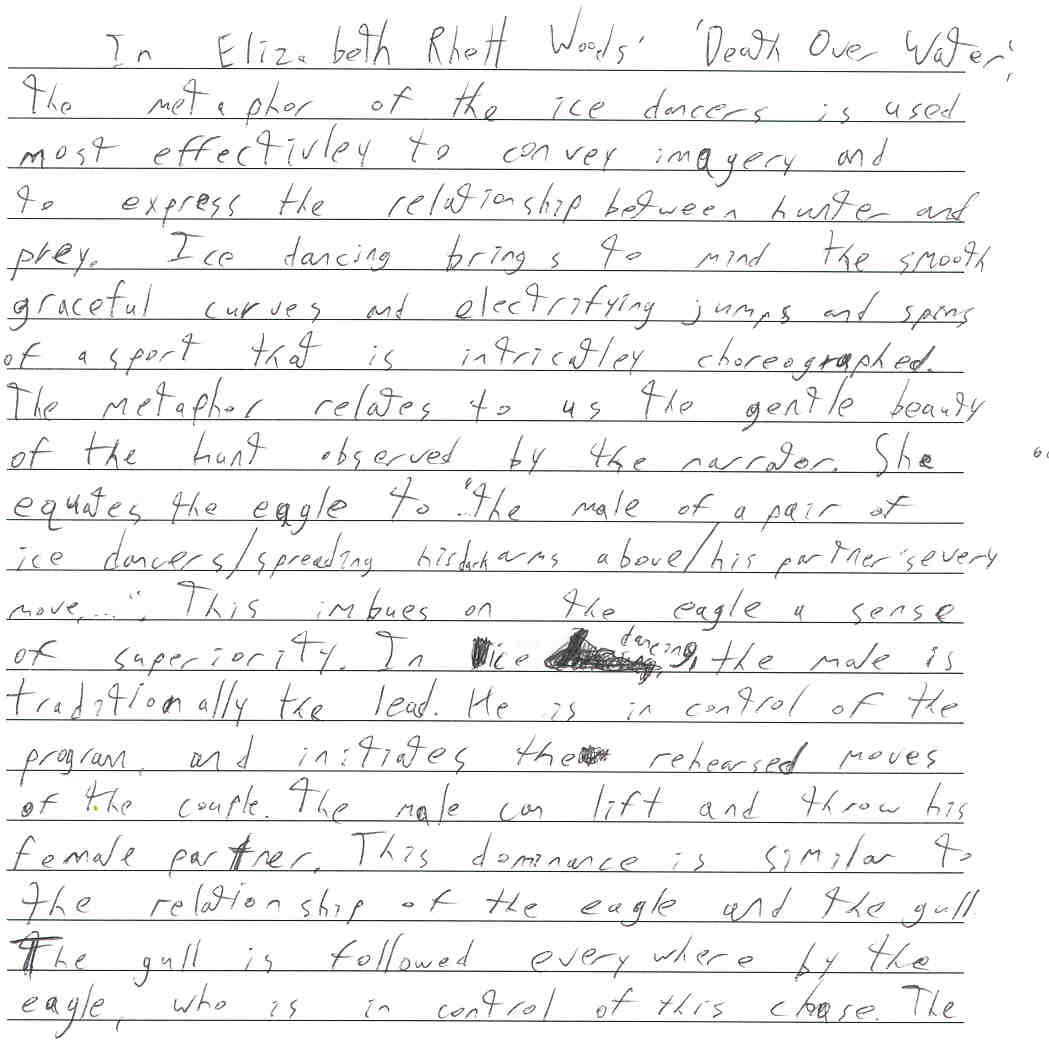 In Elizabeth Rhett Woods' 'Death Over Water',
the metaphor of the ice dancers is used
most effectivley to convey imagery and
to express the relationship between hunter and
prey. Ice dancing brings to mind the smooth
graceful curves and electrifying jumps and spins
of a sport that is intricatley choreographed.
The metaphor relates to us the gentle beauty
of the hunt observed by the narrator. She
equates the eagle to "the male of a pair of
ice dancers/spreading his dark arms above/his partner's every
move,...". This imbues on the eagle a sense
of superiority. In ice dancing, the male is
traditionally the lead. He is in control of the
program, and initiates the rehearsed moves
of the couple. The male can lift and throw his
female partner. This dominance is similar to
the relationship of the eagle and the gull.
The gull is followed everywhere by the
eagle, who is in control of this chase. The